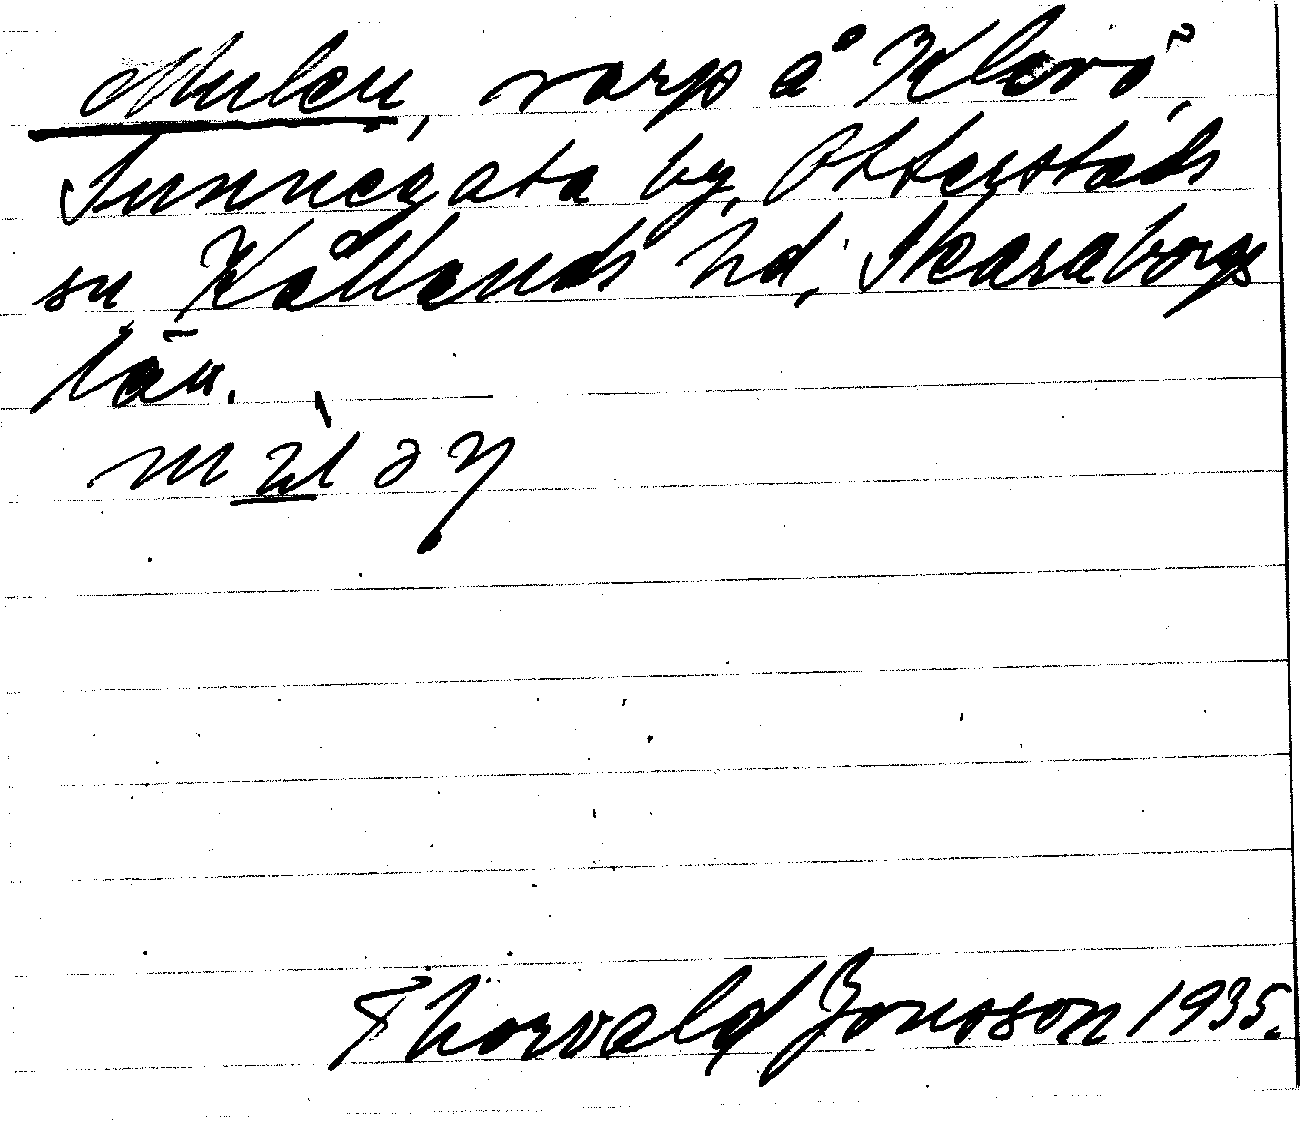 Mulen, varp å Klovö,
Sunnegata by, Otterstads
sn Kållands hd, Skaraborgs
län.
Thorvald Jonsson 1935.